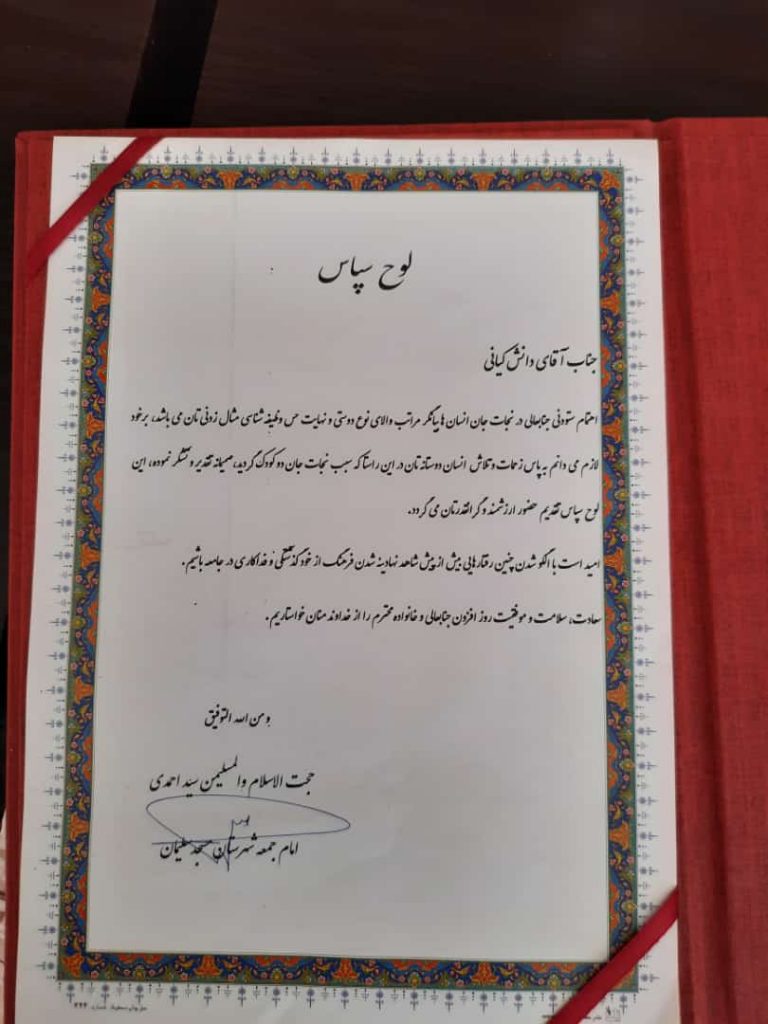 لوح سپاس
جناب آقای دانش کیانی
اهتمام ستودنی جنابعالی در نجات جان انسان ها بیانگر مراتب والای نوع دوستی و نهایت حس وظیفه شناسی مثال زدنی تان می باشد، برخود
لازم می دانم به پاس زحمات و تلاش انسان دوستانه تان در این راستا که سبب نجات جان دو کودک گردید، صمیمانه تقدیر و تشکر نموده، این
لوح سپاس تقدیم حضور ارزشمند و گرانقدرتان می گردد.
امید است با الگو شدن چنین رفتارهایی بیش از پیش شاهد نهادینه شدن فرهنگ از خود گذشتگی و فداکاری در جامعه باشیم.
سعادت، سلامت و موفقیت روز افزون جنابعالی و خانواده محترم را از خداوند منان خواستاریم.
و من الله التوفیق
حجت الاسلام والمسلیمن سید احمدی
امام جمعه شهرستان مسجدسلیمان